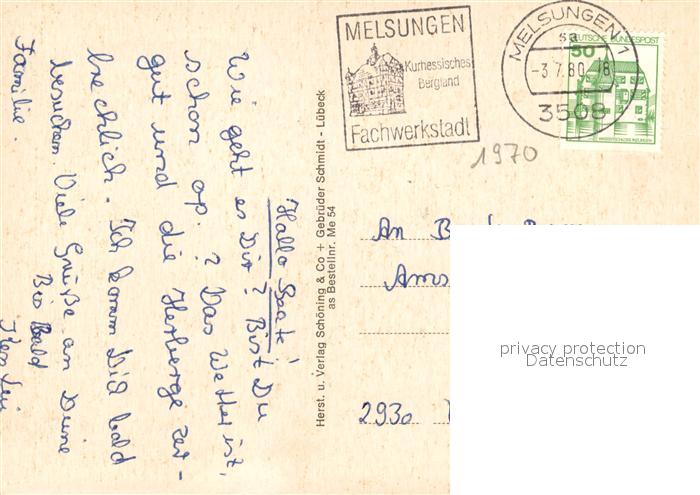 MELSUNGEN
Kurhessisches
Bergland
Fachwerkstadt
MELSUNGEN 1
sa
-3.7.80 18
3508
DEUTSCHE BUNDESPOST
50
WASSERSCHLOSS INZLINGEN
1970
Hallo Beate!
Wie geht es Dir? Bist Du
schon op.? Das Wetter ist,
gut und die Herberge zer-
brechlich. Ich komm Dich bald
besuchen. Viele Grüße an Deine
Familie.
Bis Bald
Herst. u. Verlag Schöning & Co + Gebrüder Schmidt - Lübeck
as Bestellnr. Me 54
An
Ams
2930
privacy protection
Datenschutz